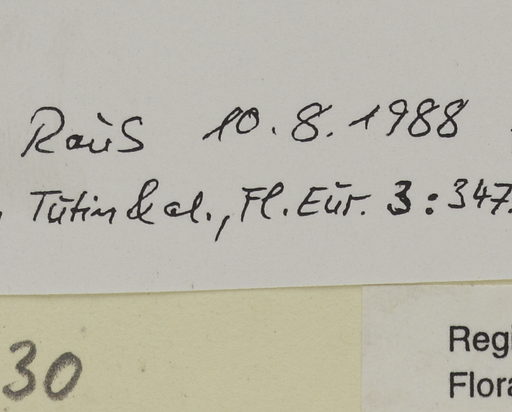 Raus 10.8.1988
Tutin & al., Fl. Eur. 3:347.
30
Regi
Flora